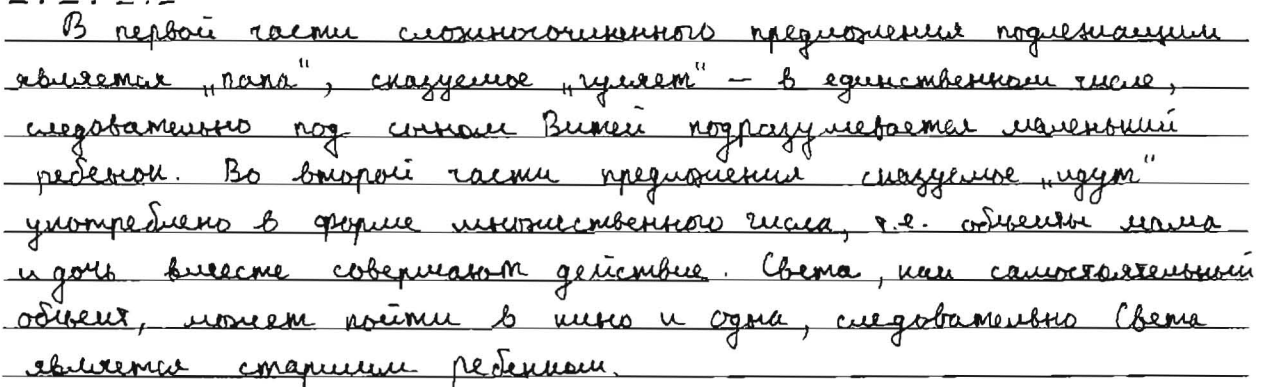 В первой части сложносочиненного предложения подлежащим
является „папа“, сказуемое „гуляет“ – в единственном числе,
следовательно под сыном Витей подразумевается маленький
ребенок. Во второй части предложения сказуемое „идут“
употреблено в форме множественного числа, т.е. объекты мама
и дочь вместе совершают действие. Света, как самостоятельный
объект, может пойти в кино и одна, следовательно Света
является старшим ребенком.